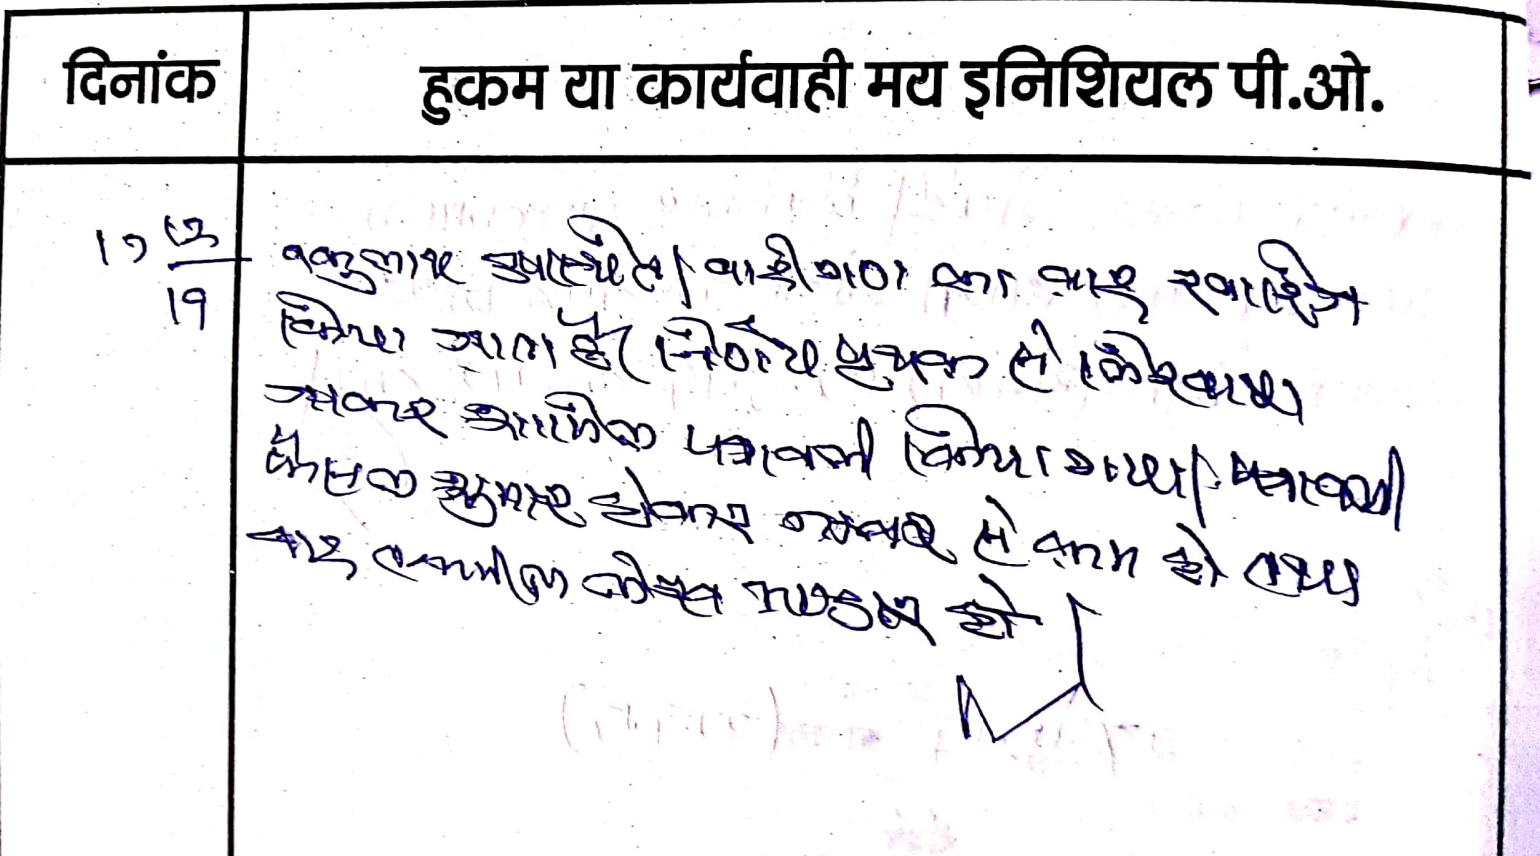 दिनांक
हुकम या कार्यवाही मय इनिशियल पी.ओ.
17 12
19
वकुलाय उपस्थित। वादीगण का वाद खारिज
किया जाता है। निर्णय पृथक से लिखवाया
जाकर शामिल पत्रावली किया गया। पत्रावली
फैसल शुमार होकर नम्बर से कम हो तथा
बाद तकमील लेख भण्डार हो।